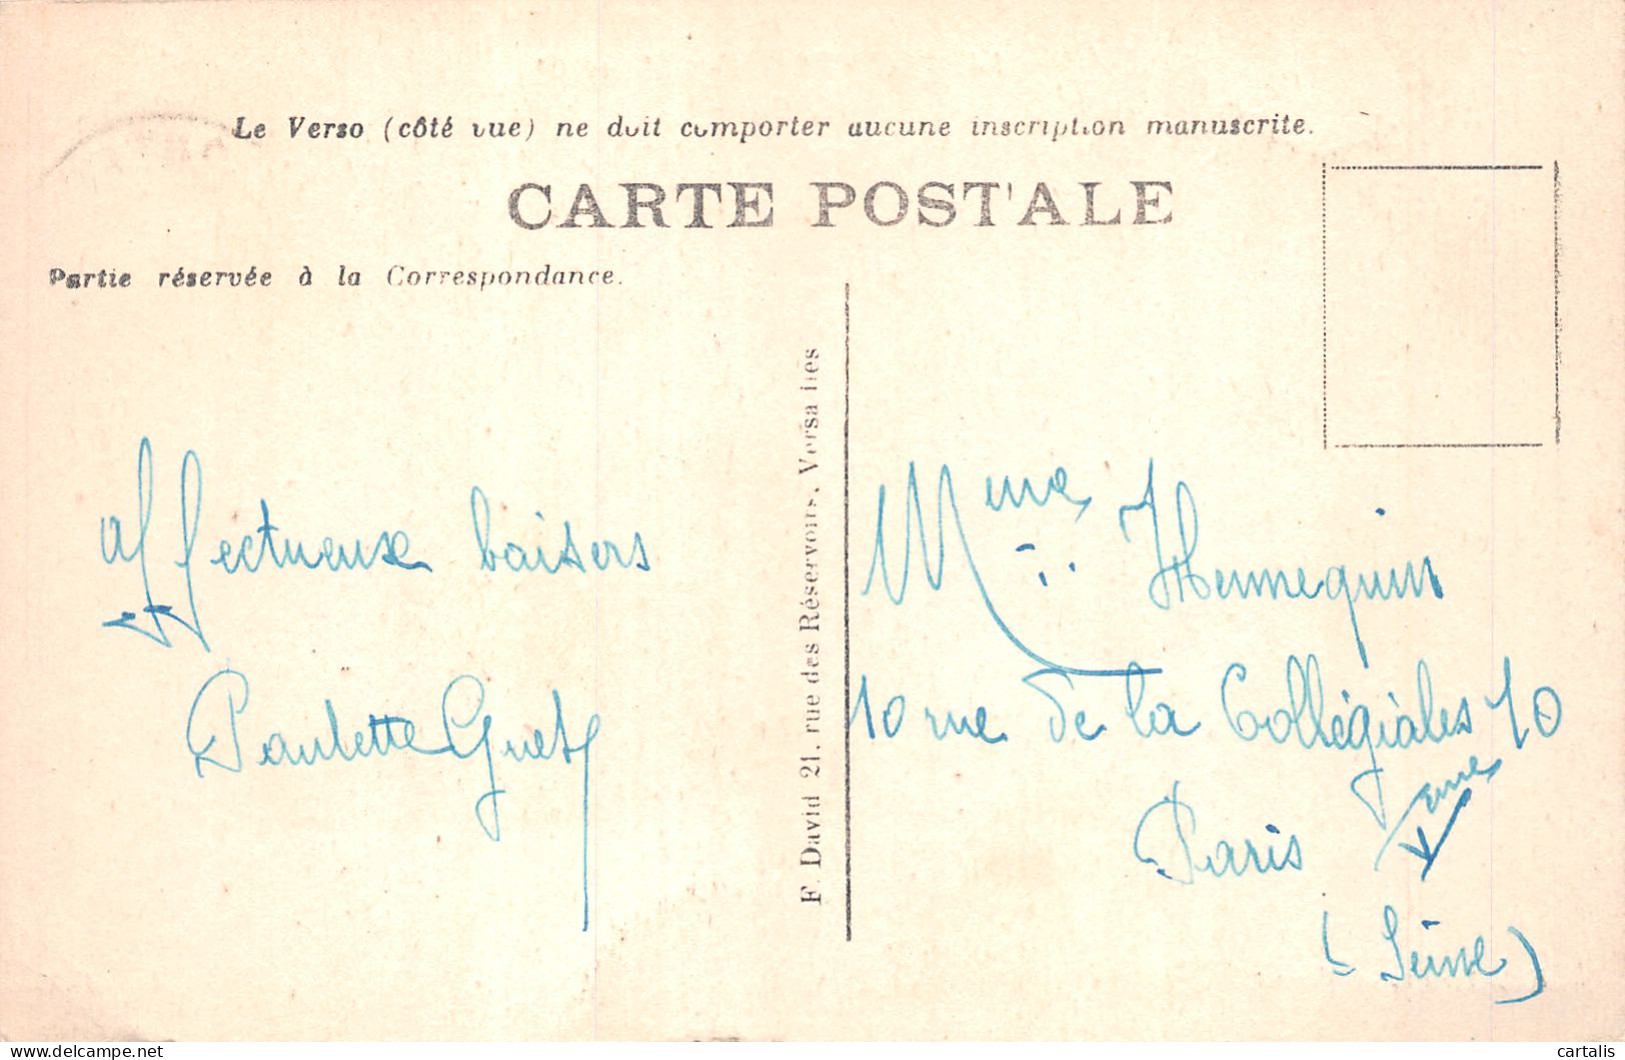 Le Verso (côté vue) ne doit comporter aucune inscription manuscrite.
CARTE POSTALE
Partie réservée à la Correspondance.
affectueux baisers
Paulette Guet
F. David 21, rue des Réservoirs, Versailles
Mme Hennequin
10 rue de la Collégiales 10
Paris Vme
(Seine)
www.delcampe.net
cartalis